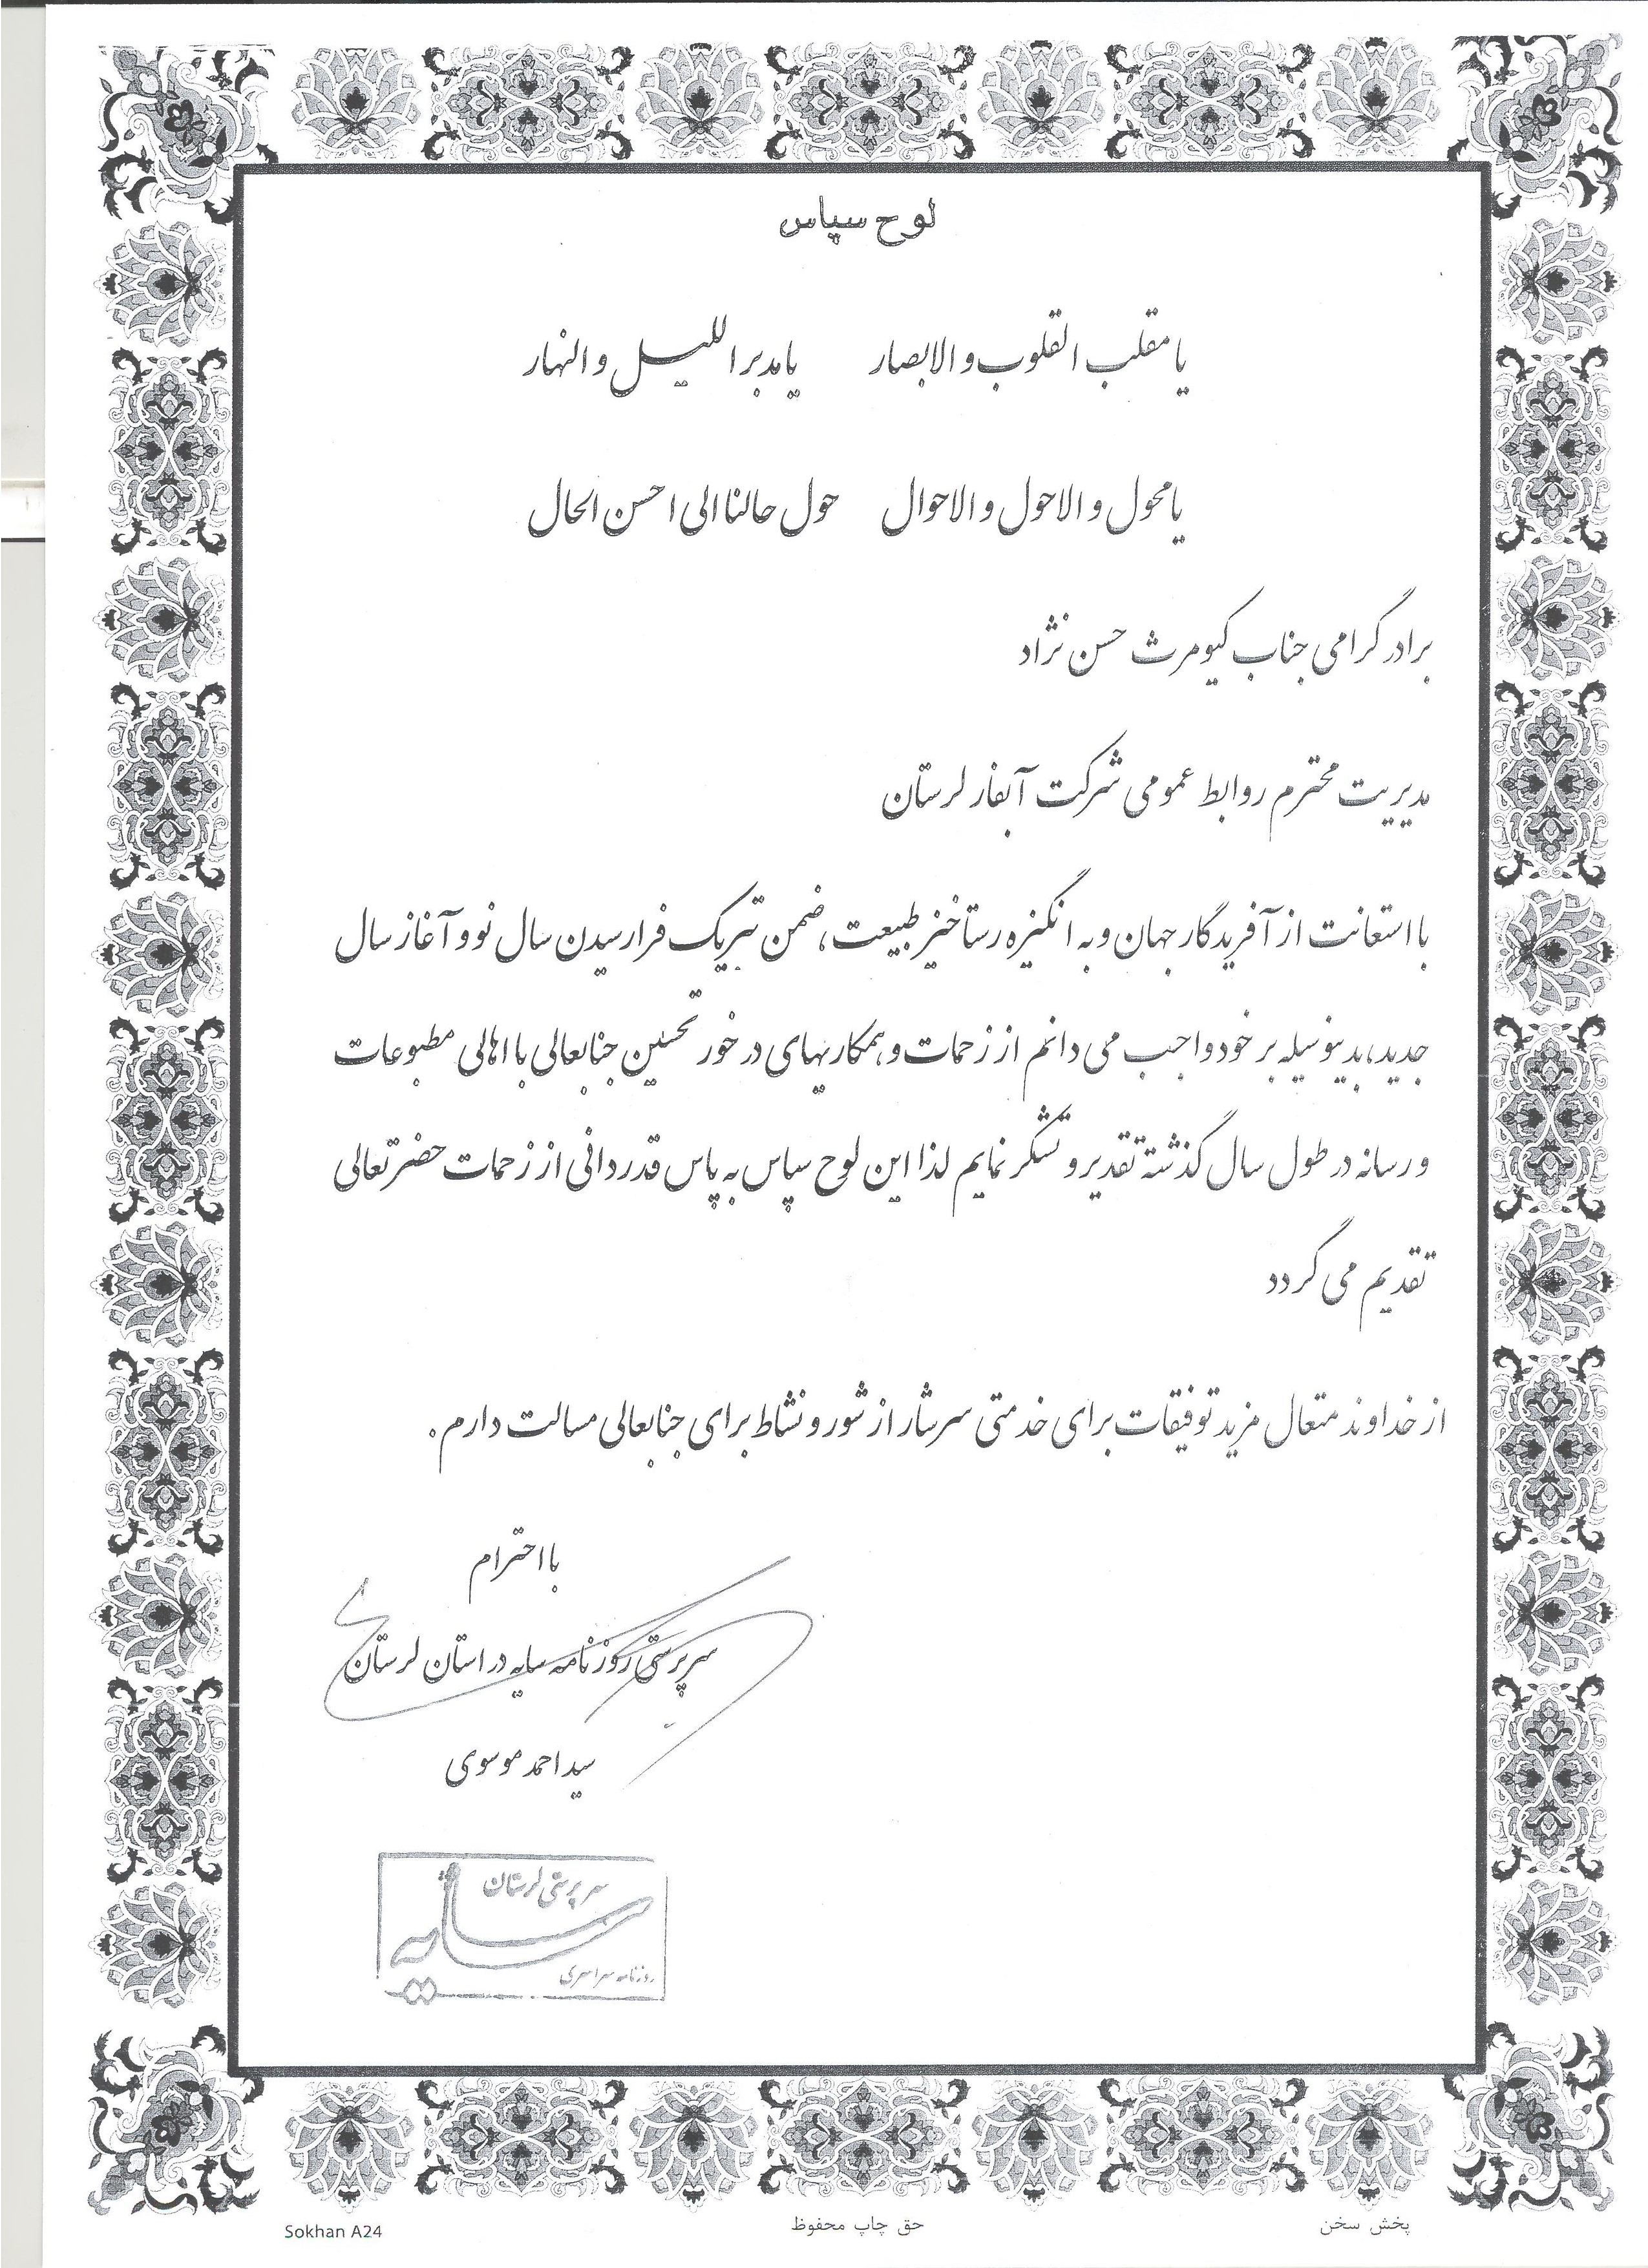 لوح سپاس
یا مقلب القلوب و الابصار یا مدبر اللیل و النهار
یا محول و الاحول و الاحوال حول حالنا الی احسن الحال
برادر گرامی جناب کیومرث حسن نژاد
مدیریت محترم روابط عمومی شرکت آبفار لرستان
با استعانت از آفریدگار جهان و به انگیزه رستاخیز طبیعت، ضمن تبریک فرارسیدن سال نو و آغاز سال
جدید، بدینوسیله بر خود واجب می دانم از زحمات و همکاریهای در خور تحسین جنابعالی با اهالی مطبوعات
و رسانه در طول سال گذشته تقدیر و تشکر نمایم لذا این لوح سپاس به پاس قدردانی از زحمات حضرتعالی
تقدیم می گردد
از خداوند متعال مزید توفیقات برای خدمتی سرشار از شور و نشاط برای جنابعالی مسالت دارم.
با احترام
سرپرستی روزنامه سایه در استان لرستان
سید احمد موسوی
سرپرستی لرستان
سایه
روزنامه سراسری
پخش سخن حق چاپ محفوظ Sokhan A24